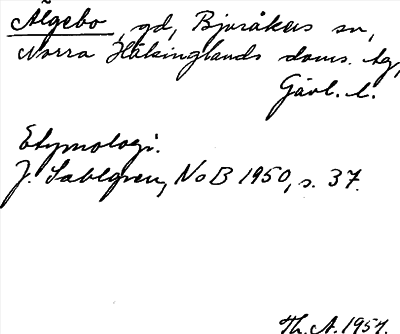 Älgebo, gd, Bjuråkers sn,
Norra Hälsinglands doms. tg,
Gävl. l.
Etymologi.
J. Sahlgren, NoB 1950, s. 37.
Th. A. 1951.